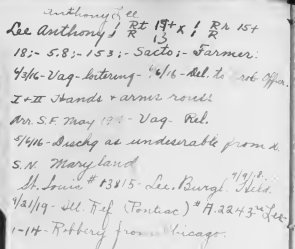 Anthony Lee
Lee Anthony 1 Rt 17+ x 1 Rr 15+
R 13 R
18; - 5.8; - 153; - Sacto; - Farmer;
4/3/16 - Vag - Loitering - 4/6/16 - Del. to Prob. Officer.
I + II Hands + arms
Arr. S.F. May - Vag - Rel.
5/6/16 - Dischg as undesirable from
S.N. Maryland
St. Louis # 13815 - Lee. Burgl.
9/21/19 - Ill. Ref (Pontiac) # A.2243 Lee
1-14 - Robbery from Chicago.